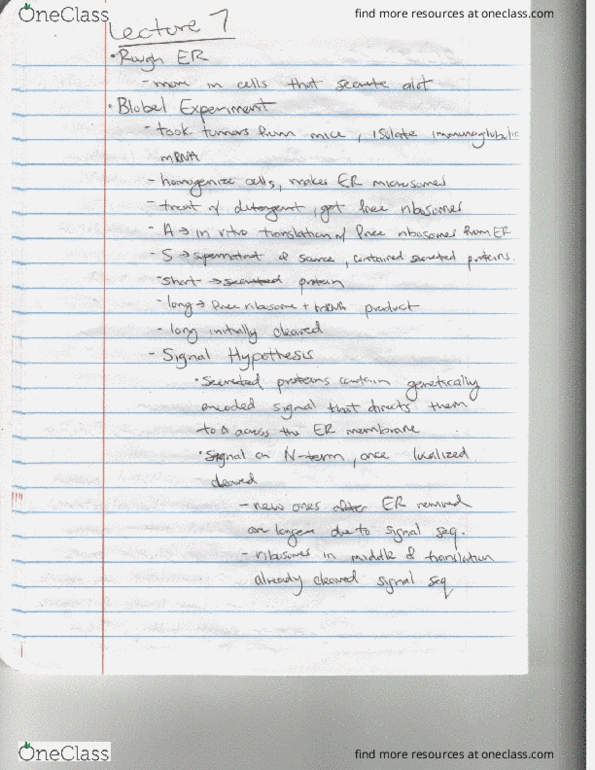 OneClass
find more resources at oneclass.com
Lecture 7
• Rough ER
- more in cells that secrete alot
• Blobel Experiment
- took tumors from mice, isolate immunoglobulin
mRNA
- homogenize cells, makes ER microsomes
- treat w/ detergent, get free ribosomes
- A → in vitro translation w/ free ribosomes from ER
- S → supernatant of source, contained secreted proteins.
- short → secreted protein
- long → free ribosome + mRNA product
- long initially cleaved
- Signal Hypothesis
• Secreted proteins contain genetically
encoded signal that directs them
to across the ER membrane
• Signal on N-term, once localized
cleaved
- new ones after ER removed
are longer due to signal seq.
- ribosomes in middle of translation
already cleaved signal seq
OneClass
find more resources at oneclass.com